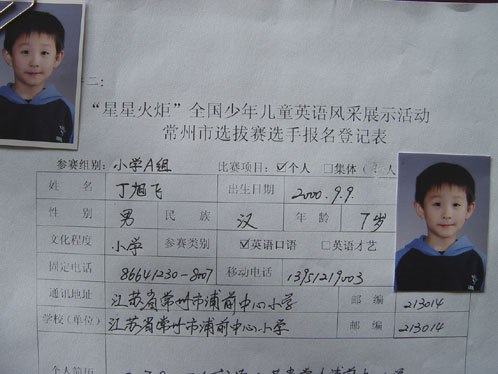 二：
“星星火炬”全国少年儿童英语风采展示活动
常州市选拔赛选手报名登记表
参赛组别：小学A组 比赛项目：☑个人 □集体（ 人
姓 名 丁旭飞 出生日期 2000.9.9.
性 别 男 民 族 汉 年 龄 7岁
文化程度 小学 参赛类别 ☑英语口语 □英语才艺
固定电话 86641230-8007 移动电话 13951219003
通讯地址 江苏省常州市浦前中心小学 邮 编 213014
学校(单位) 江苏省常州市浦前中心小学 邮 编 213014
个人简历